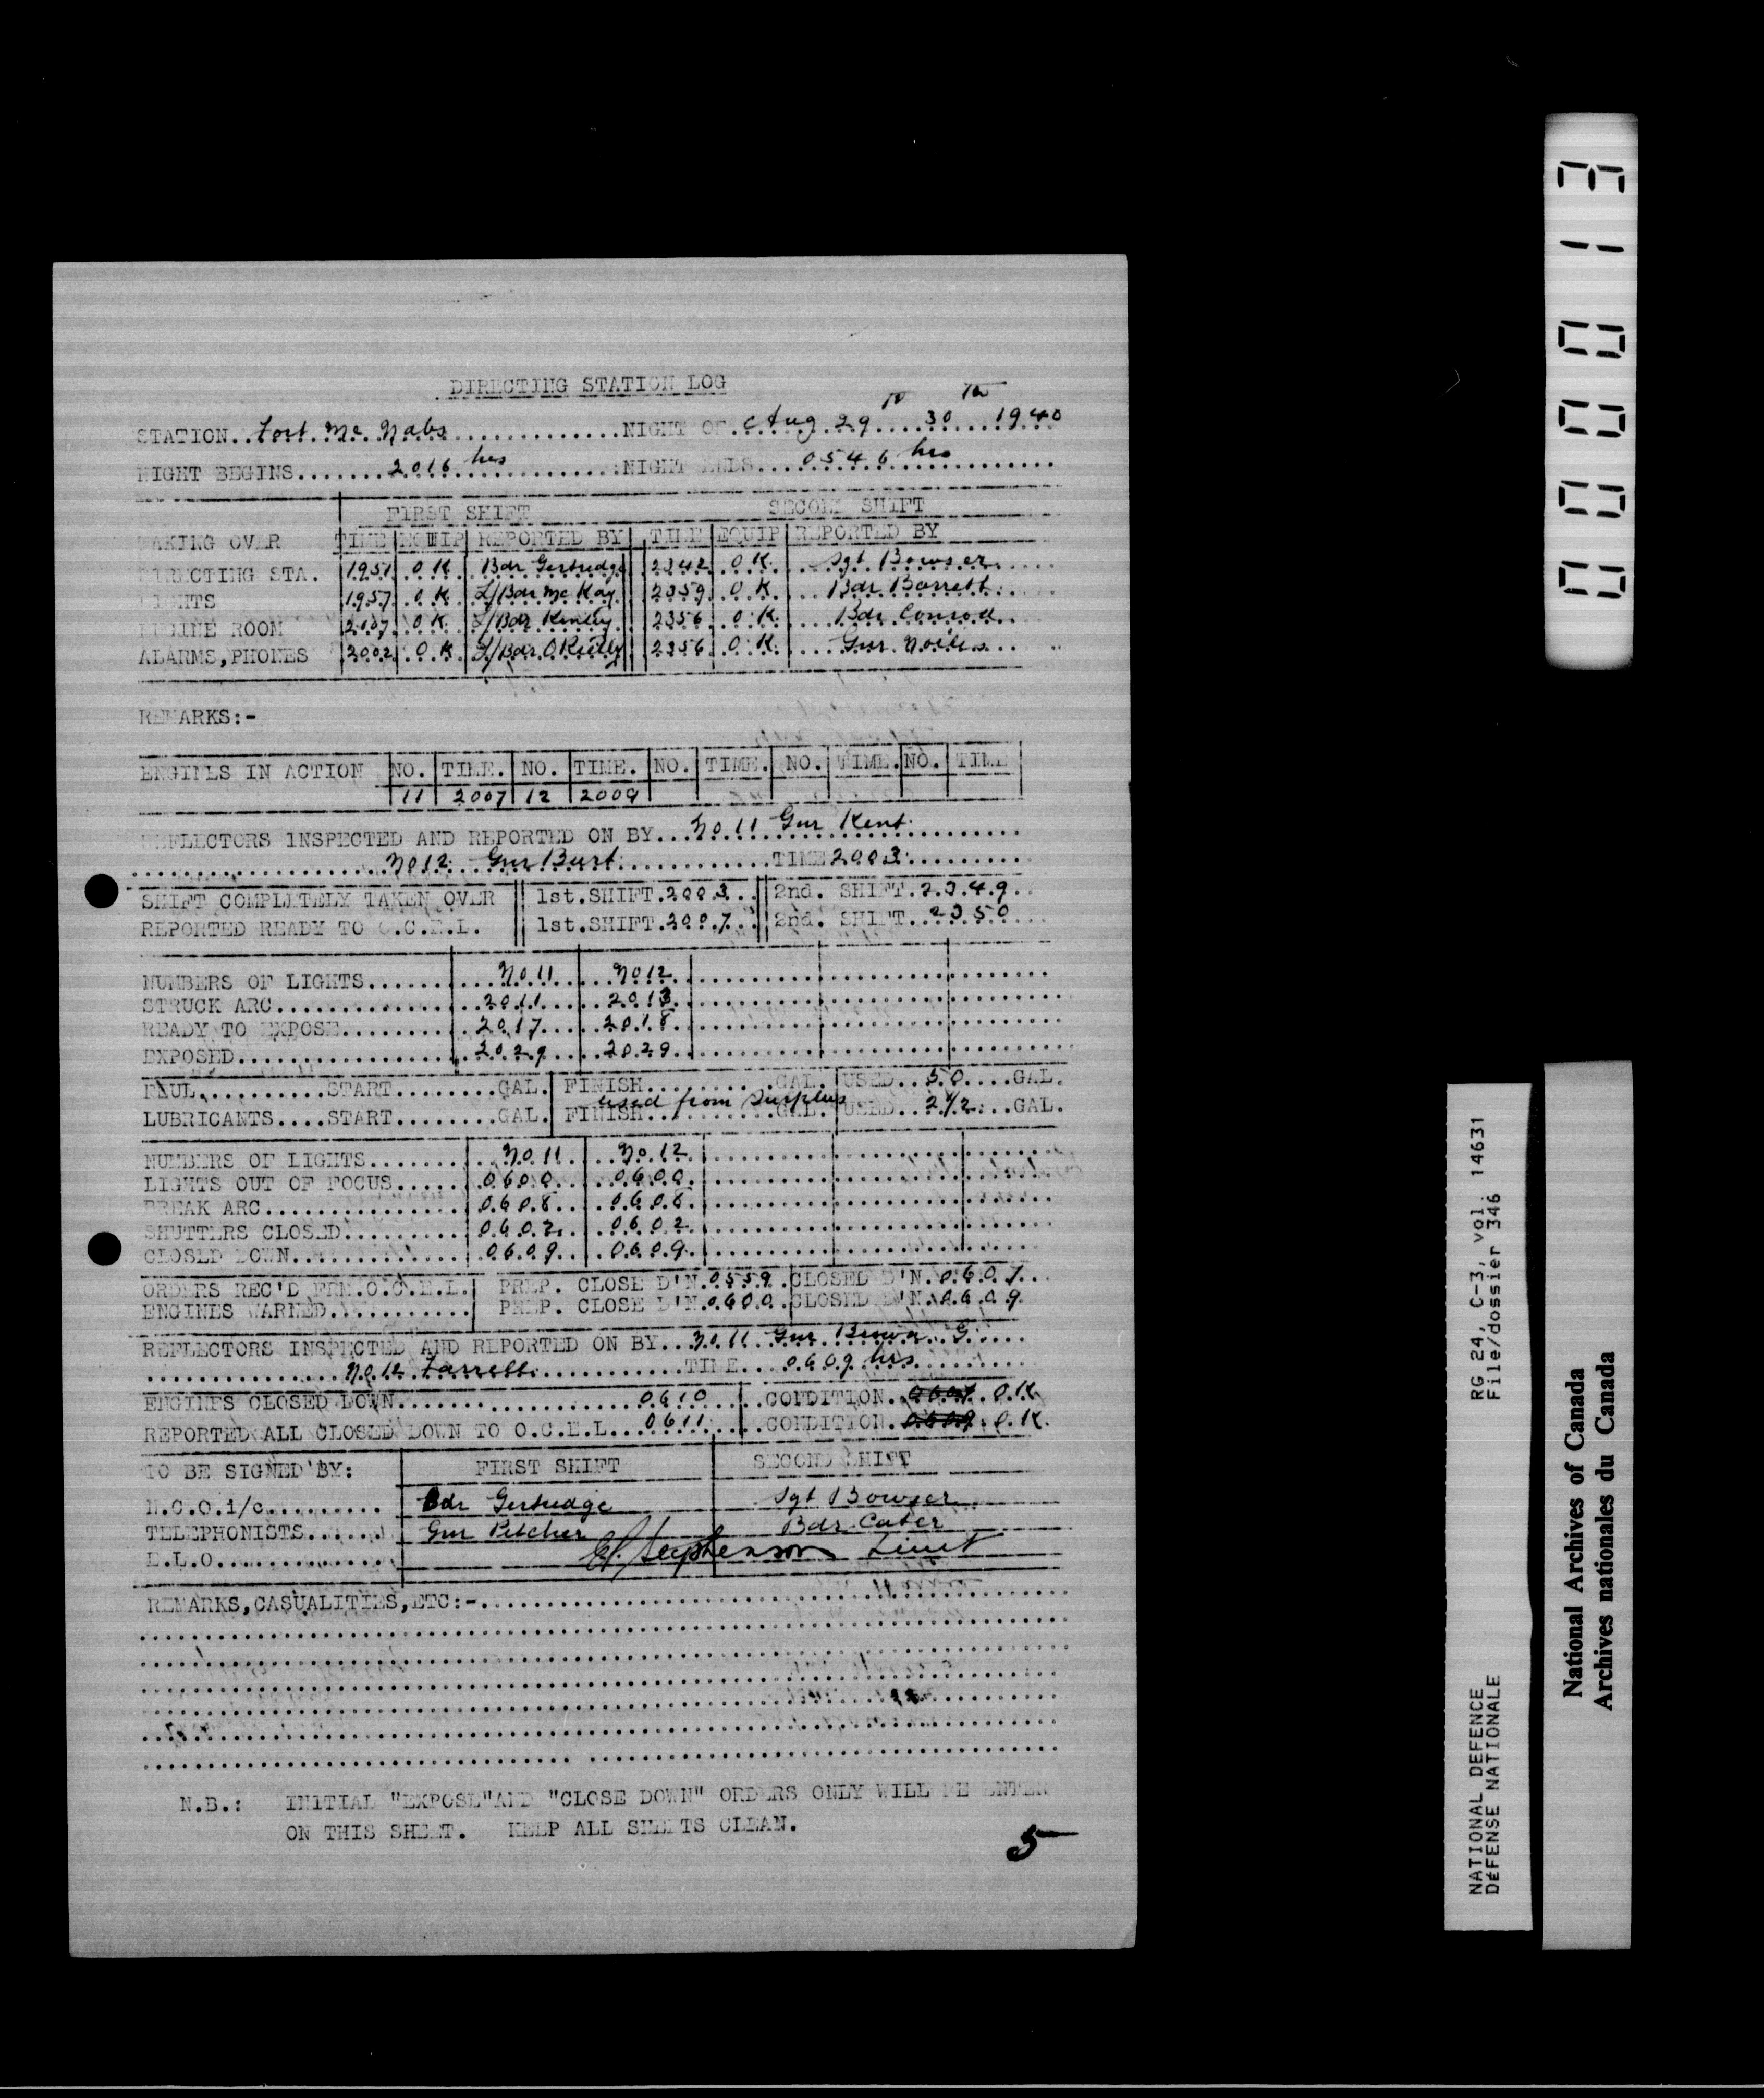 DIRECTING STATION LOG
STATION..Fort Mc Nabs......NIGHT OF.Aug 29 to 30 th 1940
NIGHT BEGINS.......2016 hrs......:NIGHT ENDS....0546 hrs
FIRST SHIFT SECOND SHIFT
TAKING OVER TIME EQUIP REPORTED BY TIME EQUIP REPORTED BY
DIRECTING STA. 1951 OK Bdr Gertridge 2342 OK Sgt Bowser
LIGHTS 1957 OK L/Bdr Mc Kay 2359 OK Bdr Barrett
ENGINE ROOM 2007 OK L/Bdr Kenley 2356 OK Bdr Conrod
ALARMS,PHONES 2002 OK L/Bdr O'Reilly 2356 OK Gnr
REMARKS:-
ENGINES IN ACTION NO. TIME. NO. TIME. NO. TIME. NO. TIME. NO. TIME
11 2007 12 2009
REFLECTORS INSPECTED AND REPORTED ON BY...No 11 Gnr Kent
No 12 Gnr Burt............TIME 2003
SHIFT COMPLETELY TAKEN OVER 1st.SHIFT.2003.. 2nd. SHIFT.2349..
REPORTED READY TO O.C.E.L. 1st.SHIFT.2007.. 2nd. SHIFT..2350
NUMBERS OF LIGHTS....... No 11 No 12
STRUCK ARC.............. 2011 2013
READY TO EXPOSE......... 2017 2018
EXPOSED................. 2029 2029
FAUL..........START........GAL. FINISH..........GAL. USED..50....GAL.
used from surplus
LUBRICANTS....START........GAL. FINISH..........GAL. USED..2 1/2...GAL.
NUMBERS OF LIGHTS....... No 11 No 12
LIGHTS OUT OF FOCUS..... 0600 0600
BREAK ARC............... 0608 0608
SHUTTERS CLOSED......... 0602 0602
CLOSED DOWN............. 0609 0609
ORDERS REC'D FRM.O.C.E.L. PREP. CLOSE D'N.0559.CLOSED D'N.0607...
ENGINES WARNED........... PREP. CLOSE D'N.0600.CLOSED D'N.0609
REFLECTORS INSPECTED AND REPORTED ON BY...No 11 Gnr Brown G
No 12 Farrell............TIME....0609 hrs
ENGINES CLOSED DOWN...................0610.....CONDITION.. OK
REPORTED ALL CLOSED DOWN TO O.C.E.L...0611.....CONDITION.. O.K.
TO BE SIGNED BY: FIRST SHIFT SECOND SHIFT
N.C.O.i/c......... Bdr Gertridge Sgt Bowser
TELEPHONISTS...... Gnr Pitcher Bdr Cater
E.L.O............. Stephenson Lieut
REMARKS,CASUALITIES,ETC:-
N.B.: INITIAL "EXPOSE"AND "CLOSE DOWN" ORDERS ONLY WILL BE ENTER
ON THIS SHEET. KEEP ALL SHEETS CLEAN.
5
000013
RG 24, C-3, vol. 14631
File/dossier 346
NATIONAL DEFENCE
DÉFENSE NATIONALE
National Archives of Canada
Archives nationales du Canada